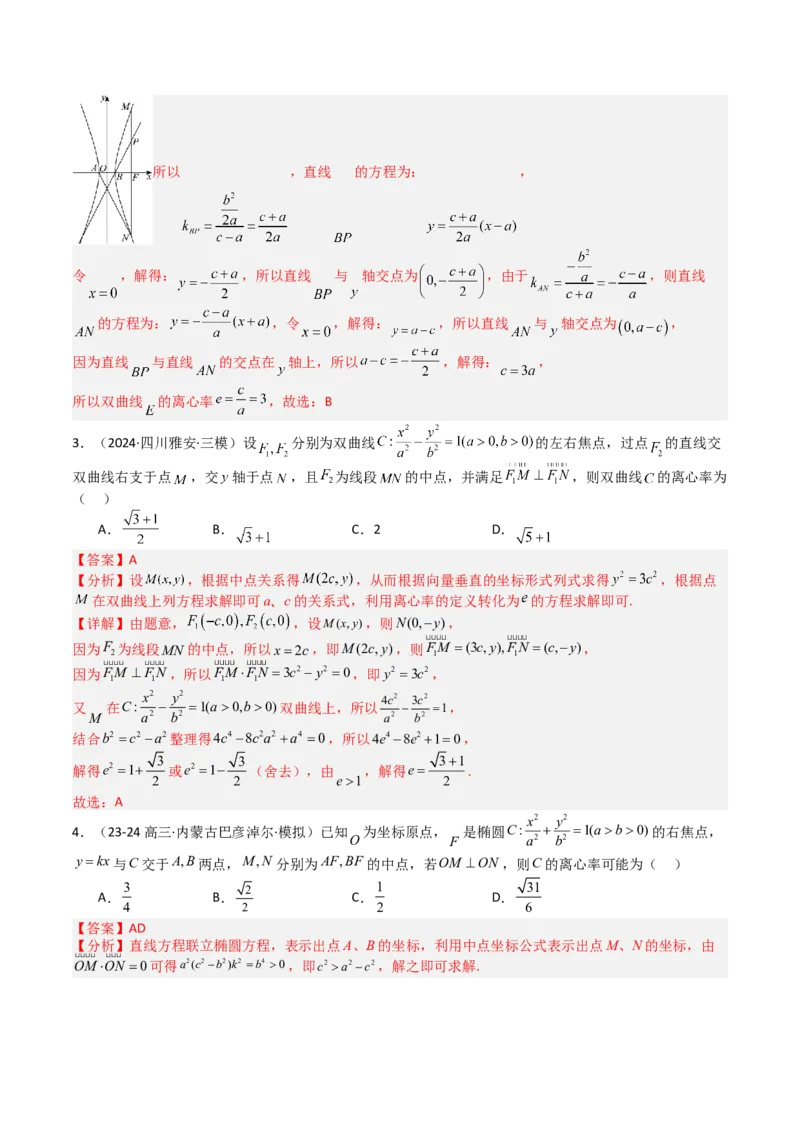 y
M
P
A O B F x
N
所以 ，直线 的方程为： ，
k_{BP} = \frac{\frac{b^2}{2a}}{c-a} = \frac{c+a}{2a} BP y = \frac{c+a}{2a}(x-a)
令 x=0 ，解得： y = -\frac{c+a}{2} ，所以直线 BP 与 y 轴交点为 (0, -\frac{c+a}{2}) ，由于 k_{AN} = \frac{-\frac{b^2}{a}}{c+a} = -\frac{c-a}{a} ，则直线
AN 的方程为： y = -\frac{c-a}{a}(x+a) ，令 x=0 ，解得： y=a-c ，所以直线 AN 与 y 轴交点为 (0,a-c) ，
因为直线 BP 与直线 AN 的交点在 y 轴上，所以 a-c = -\frac{c+a}{2} ，解得： c=3a ，
所以双曲线 E 的离心率 e = \frac{c}{a} = 3 ，故选：B
3．（2024·四川雅安·三模）设 F_1,F_2 分别为双曲线 C: \frac{x^2}{a^2} - \frac{y^2}{b^2} = 1(a>0,b>0) 的左右焦点，过点 F_2 的直线交
双曲线右支于点 M ，交 y 轴于点 N ，且 F_2 为线段 MN 的中点，并满足 F_1M ⊥ F_1N ，则双曲线 C 的离心率为
（ ）
A． \frac{\sqrt{3}+1}{2} B． \sqrt{3}+1 C．2 D． \sqrt{5}+1
【答案】A
【分析】设 M(x,y) ，根据中点关系得 M(2c,y) ，从而根据向量垂直的坐标形式列式求得 y^2 = 3c^2 ，根据点
M 在双曲线上列方程求解即可a、c的关系式，利用离心率的定义转化为 e 的方程求解即可.
【详解】由题意， F_1(-c,0),F_2(c,0) ，设 M(x,y) ，则 N(0,-y) ，
因为 F_2 为线段 MN 的中点，所以 x=2c ，即 M(2c,y) ，则 F_1M = (3c,y),F_1N = (c,-y) ，
因为 F_1M ⊥ F_1N ，所以 F_1M · F_1N = 3c^2 - y^2 = 0 ，即 y^2 = 3c^2 ，
又 M 在 C: \frac{x^2}{a^2} - \frac{y^2}{b^2} = 1(a>0,b>0) 双曲线上，所以 \frac{4c^2}{a^2} - \frac{3c^2}{b^2} = 1 ，
结合 b^2 = c^2 - a^2 整理得 4c^4 - 8c^2a^2 + a^4 = 0 ，所以 4e^4 - 8e^2 + 1 = 0 ，
解得 e^2 = 1 + \frac{\sqrt{3}}{2} 或 e^2 = 1 - \frac{\sqrt{3}}{2} （舍去），由 e>1 ，解得 e = \frac{\sqrt{3}+1}{2} .
故选：A
4．（23-24高三·内蒙古巴彦淖尔·模拟）已知 O 为坐标原点， F 是椭圆 C: \frac{x^2}{a^2} + \frac{y^2}{b^2} = 1(a>b>0) 的右焦点，
y=kx 与 C 交于 A,B 两点， M,N 分别为 AF,BF 的中点，若 OM ⊥ ON ，则 C 的离心率可能为（ ）
A． \frac{3}{4} B． \frac{\sqrt{2}}{2} C． \frac{1}{2} D． \frac{\sqrt{31}}{6}
【答案】AD
【分析】直线方程联立椭圆方程，表示出点A、B的坐标，利用中点坐标公式表示出点M、N的坐标，由
OM · ON = 0 可得 a^2(c^2-b^2)k^2 = b^4 > 0 ，即 c^2 > a^2 - c^2 ，解之即可求解.